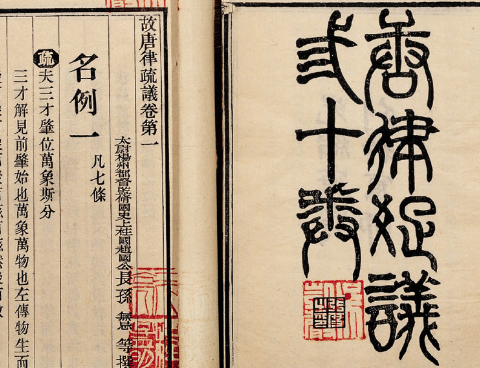 唐律疏議
弍十卷
故唐律疏議卷第一
太尉揚州都督監修國史上柱國趙國公長孫無忌等撰
名例一
凡七條
疏夫三才肇位萬象斯分
三才解見前肇始也萬象萬物也左傳物生而